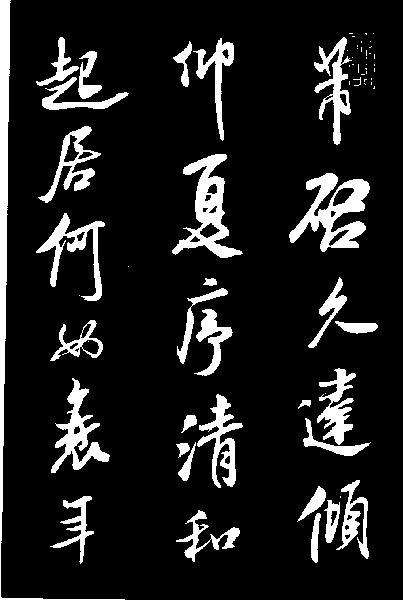 芾啓久違傾
仰夏序清和
起居何如衰年